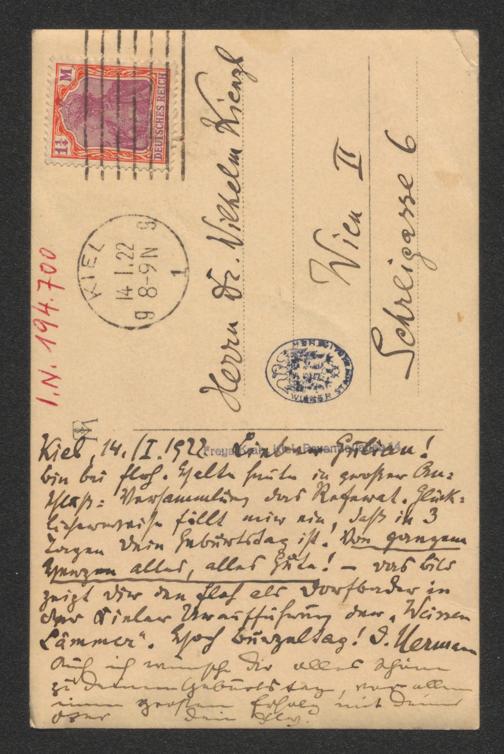 1¼ M
DEUTSCHES REICH
KIEL
14.1.22
8-9N
1
I.N. 194.700
Herrn Dr. Wilhelm Kienzl
Wien II
Schreigasse 6
WIENER STADT
Kiel, 14./I.1922. Liebster
bin bei Flof. Halte heute in großer An=
schluß=Versammlung das Referat. Glück=
licherweise fällt mir ein, daß in 3
Tagen Dein Geburtstag ist. Von ganzem
Herzen alles, alles Gute! – Das Bild
zeigt Dir den Flof als Dorfbader in
der Kieler Uraufführung der „Weissen
Lämmer". Hoch Burzeltag! D. Hermann
Auch ich wünsche Dir alles Schöne
zu Deinem Geburtstag, vor allem
einen großen Erfolg mit Deiner
Oper Dein